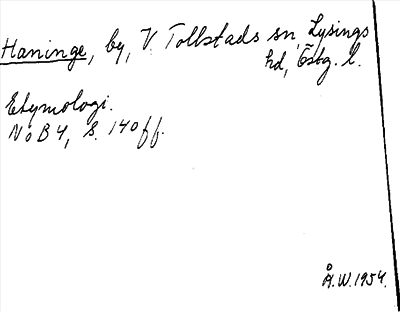 Haninge, by, V. Tollstads sn, Lysings
hd, Östg. l.
Etymologi.
NoB 4, s. 140ff.
Å.W. 1954.